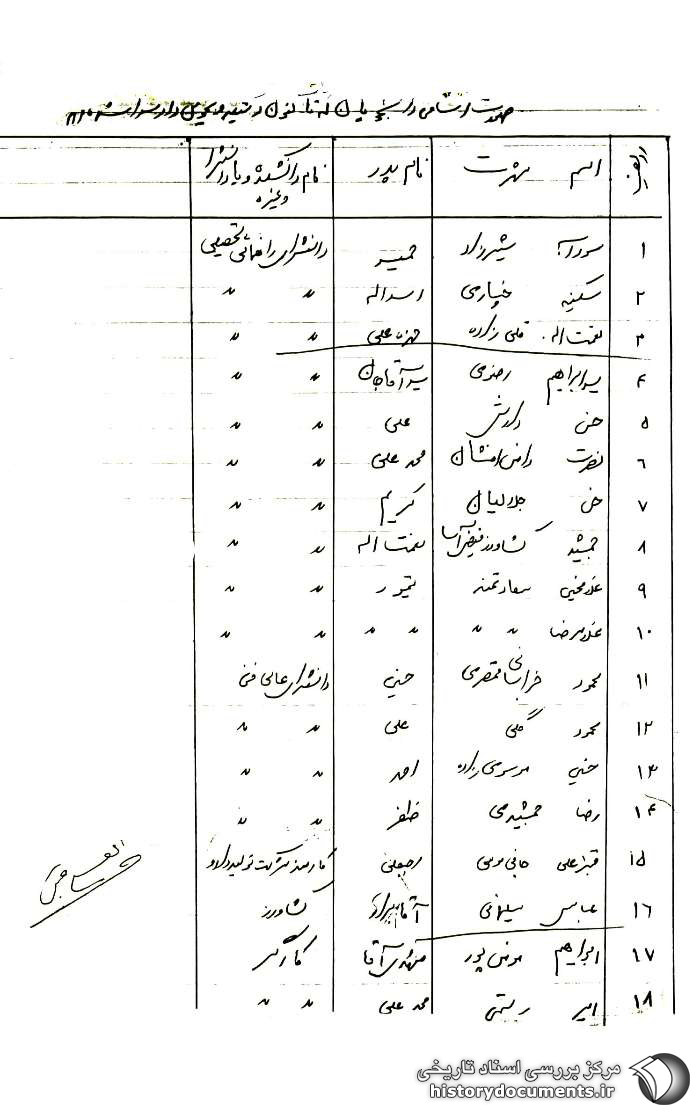 صورت اسامی دانشجویان که تاکنون دستگیر و تحویل دادسرا شده‌اند
ردیف اسم شهرت نام پدر نام دانشکده و یا دانشسرا
و غیره
۱ سودابه شیرزاد حسن دانشسرای راهنمائی تحصیلی
۲ سکینه خیاری اسداله " "
۳ نعمت اله قلی زاده حمزه علی " "
۴ سید ابراهیم رضوی سید آقاجان " "
۵ حسن دلروش علی " "
۶ نصرت محمد علی " "
۷ حسن جلالیان کریم " "
۸ جمشید کشاورز نعمت اله " "
۹ غلامحسین سعادتمند تیمور " "
۱۰ غلامرضا " " " " " "
۱۱ محمود خراسانی قمصری حسین دانشسرای عالی فنی
۱۲ محمود گلی علی " "
۱۳ حسین موسوی زاده احمد " "
۱۴ رضا جمشیدی ظفر " "
۱۵ قنبر علی حاجی موسی رجبعلی کارمند شرکت تولید دارو
۱۶ عباس سلیمانی کشاورز
۱۷ ابراهیم مومن پور مهدی آقا کارگر
۱۸ امیر رستمی محمد علی " "
مرکز بررسی اسناد تاریخی
historydocuments.ir